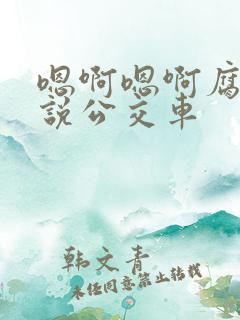 嗯啊嗯啊腐
説公交車
韩文青
未经同意禁止转载